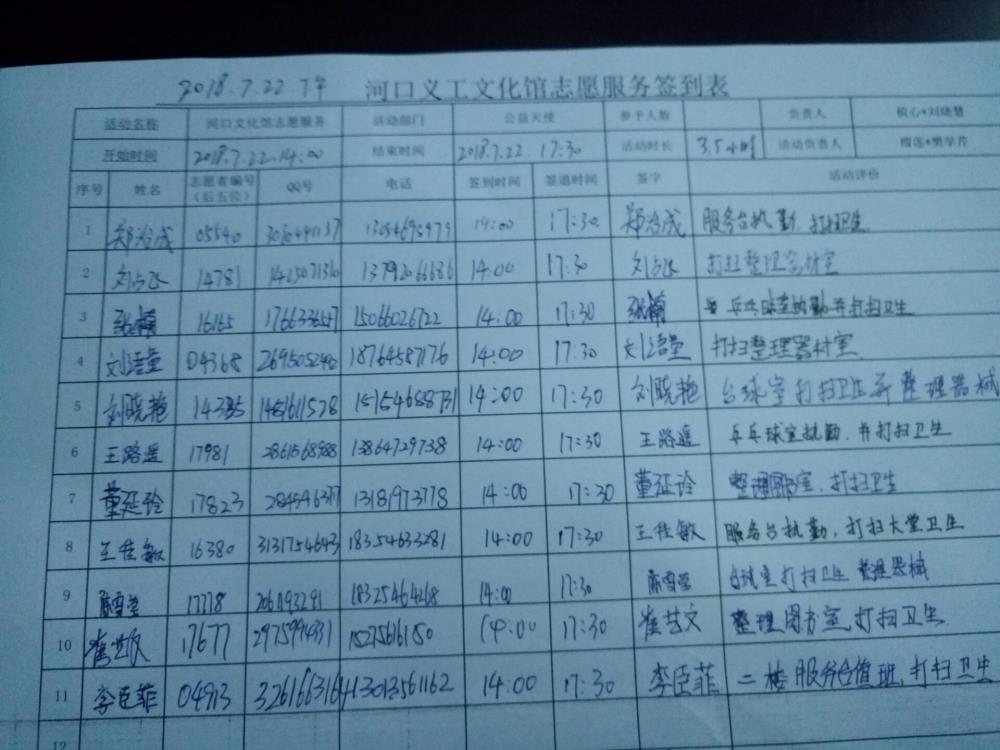 2018.7.22 下午 河口义工文化馆志愿服务签到表
活动名称 河口文化馆志愿服务 活动部门 公益天使 参予人数 负责人 校心+刘晓慧
开始时间 2018.7.22.14:00 结束时间 2018.7.22 17:30 活动时长 3.5小时 活动负责人 榴莲+樊学芹
序号 姓名 志愿者编号（后五位） QQ号 电话 签到时间 签退时间 签字 活动评价
1 郑治成 05540 14:00 17:30 郑治成 服务台执勤，打扫卫生
2 14781 14:00 17:30 打扫整理器材室
3 张楠 16165 15066026722 14:00 17:30 张楠 乒乓球室执勤并打扫卫生
4 刘语堂 04368 2695052240 18764587176 14:00 17:30 刘语堂 打扫整理器材室
5 刘晓艳 1481611578 14:00 17:30 刘晓艳 台球室打扫卫生并整理器械
6 王路遥 17981 2861568988 13864729738 14:00 17:30 王路遥 乒乓球室执勤，并打扫卫生
7 董延玲 17823 13181973778 14:00 17:30 董延玲 整理图书室，打扫卫生
8 王佳敏 16380 3131754643 18354633281 14:00 17:30 王佳敏 服务台执勤，打扫大堂卫生
9 17778 18325464268 14:00 17:30 台球室打扫卫生 整理器械
10 崔艺文 17677 14:00 17:30 崔艺文 整理图书室，打扫卫生
11 李臣菲 04913 3261663164 13013561162 14:00 17:30 李臣菲 二楼服务台值班，打扫卫生
12